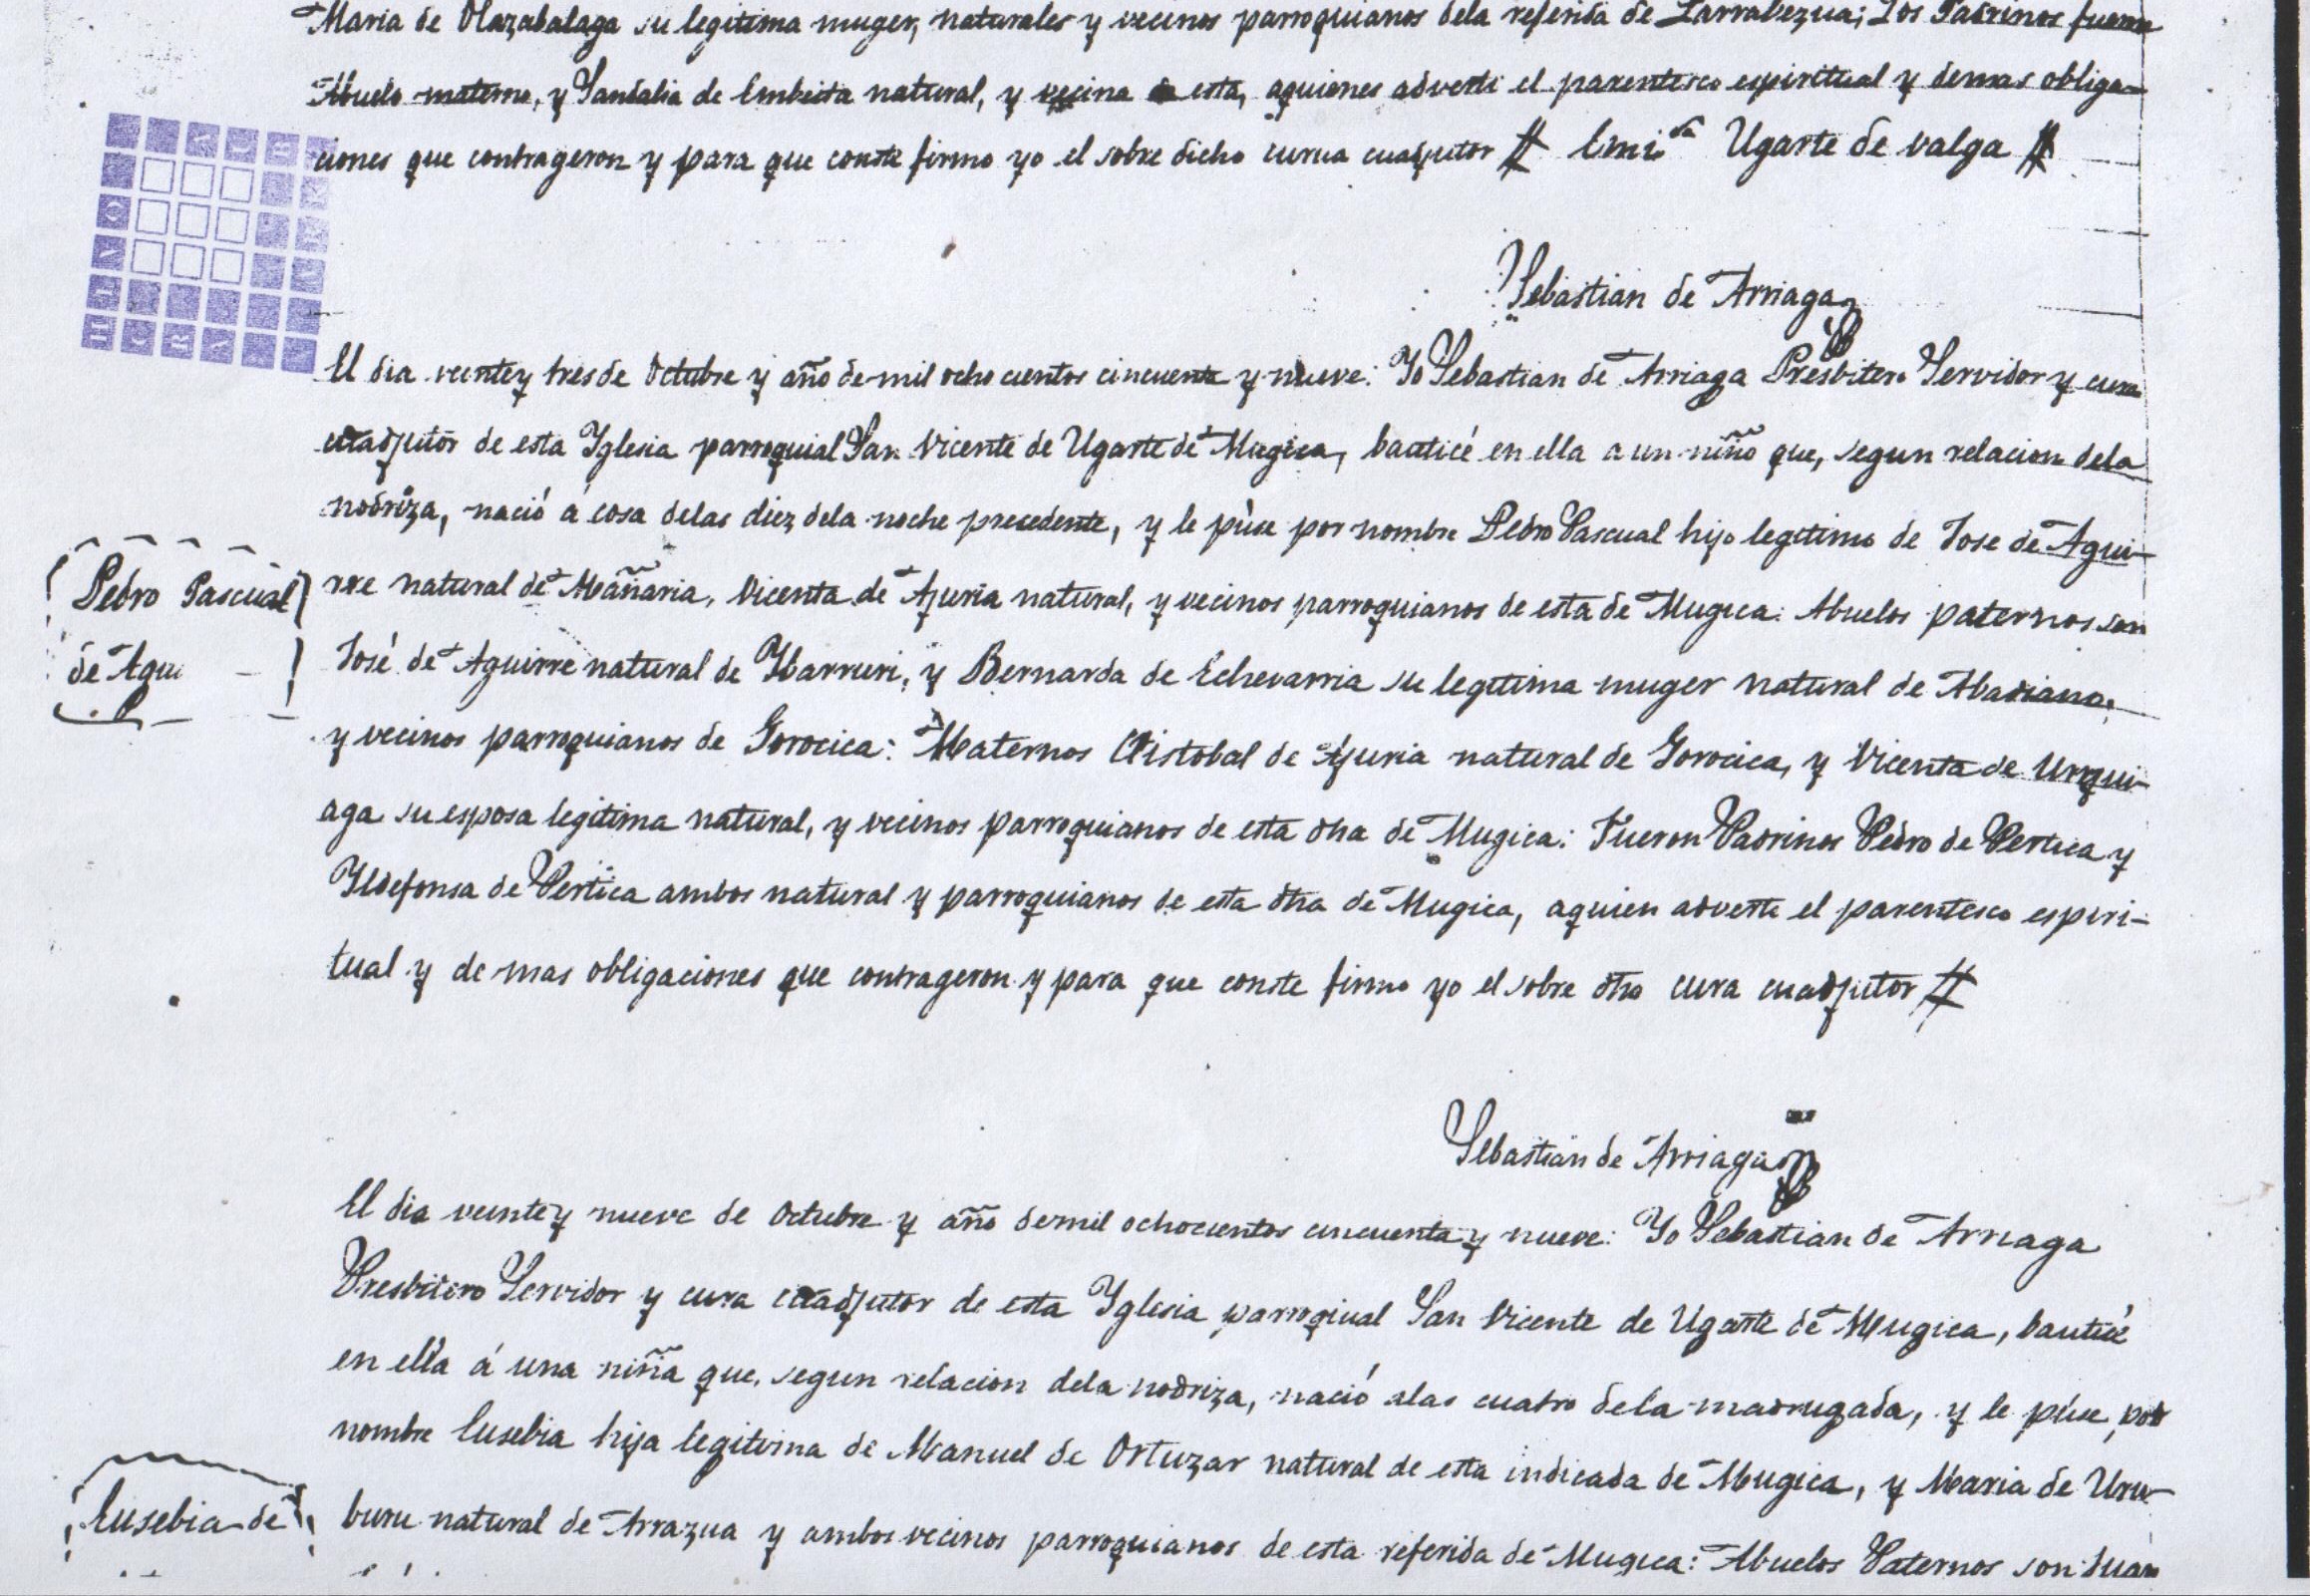 Maria de Olazabalaga su legitima muger, naturales y vecinos parroquianos dela referida de Larrabezua; Los Padrinos fueron
Abuelo materno, y Sandalia de natural, y vecina de esta, aquienes adverti el parentesco espiritual y demas obliga-
ciones que contrageron y para que conste firmo yo el sobre dicho curua cuadjutor # Ugarte de valga #
Sebastian de Arriaga
El dia veintey tres de Octubre y año de mil ocho cientos cincuenta y nueve: Yo Sebastian de Arriaga Presbitero Servidor y cura
cuadjutor de esta Yglesia parroquial San Vicente de Ugarte de Mugica, bauticé en ella a un niño que, segun relacion dela
nodriza, nació á cosa delas diez dela noche precedente, y le púse por nombre Pedro Pascual hijo legitimo de Jose de Agui-
rre natural de Mañaria, Vicenta de Ajuria natural, y vecinos parroquianos de esta de Mugica: Abuelos paternos son
Pedro Pascual
de Agui
José de Aguirre natural de Ybarruri, y Bernarda de Echevarria su legitima muger natural de Abadiano,
y vecinos parroquianos de Gorocica: Maternos Cristobal de Ajuria natural de Gorocica, y Vicenta de Urqui-
aga su esposa legitima natural, y vecinos parroquianos de esta dha de Mugica: Fueron Padrinos Pedro de Pertica y
Yldefonsa de Pertica ambos natural y parroquianos de esta dha de Mugica, aquien adverti el parentesco espiri-
tual y de mas obligaciones que contrageron y para que conste firmo yo el sobre dho cura cuadjutor #
Sebastian de Arriaga
El dia veintey nueve de Octubre y año demil ochocientos cincuenta y nueve: Yo Sebastian de Arriaga
Presbitero Servidor y cura cuadjutor de esta Yglesia parroqiual San Vicente de Ugarte de Mugica, bauticé
en ella á una niña que, segun relacion dela nodriza, nació alas cuatro dela madrugada, y le púse por
nombre Eusebia hija legitima de Manuel de Ortuzar natural de esta indicada de Mugica, y Maria de Uru-
Eusebia de
buru natural de Arrazua y ambos vecinos parroquianos de esta referida de Mugica: Abuelos Paternos son Juan